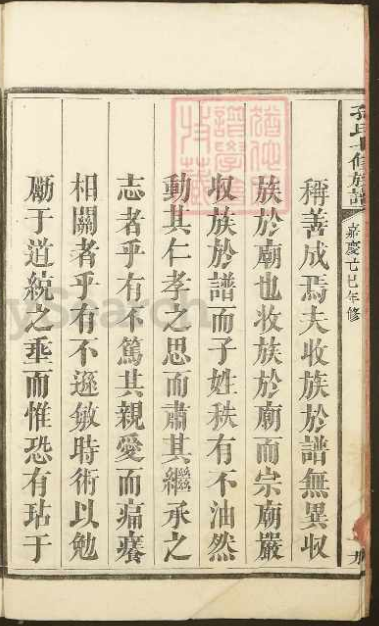 稱善成焉夫收族於譜無異收
族於廟也收族於廟而宗廟嚴
收族於譜而子姓秩有不油然
動其仁孝之思而肅其繼承之
志者乎有不篤其親愛而痌癢
相關者乎有不遜敏時術以勉
勵于道統之垂而惟恐有玷于
孫氏十修族譜
嘉慶己巳年修